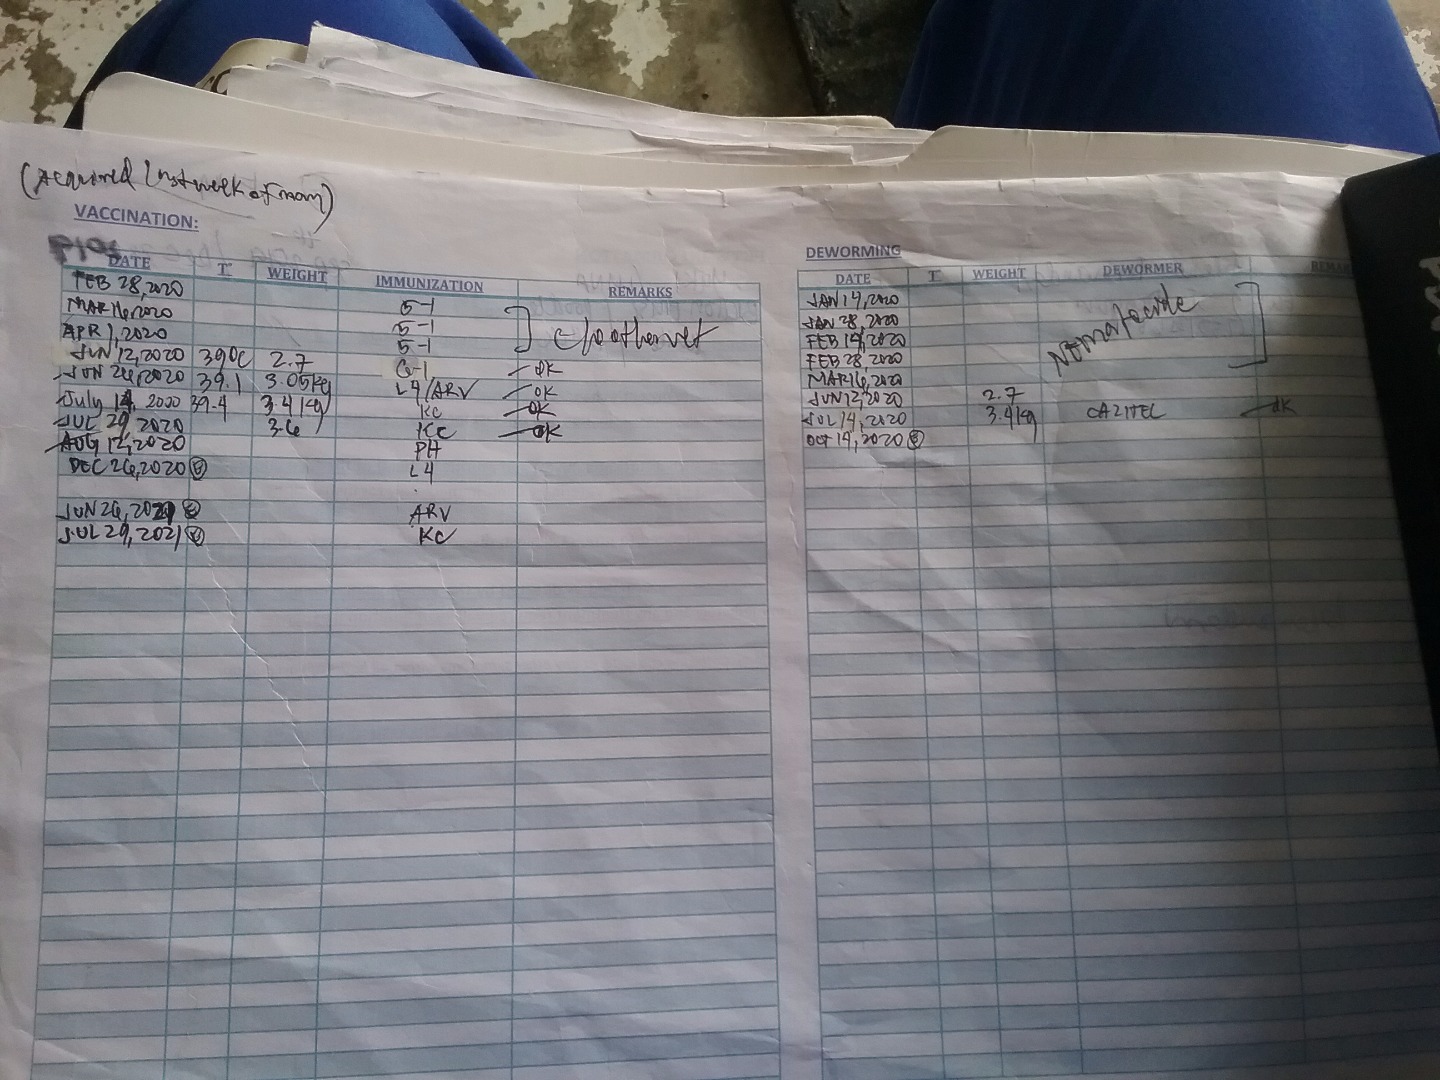 (Acquired last week of
VACCINATION:
DATE T° WEIGHT IMMUNIZATION REMARKS
FEB 28, 2020
MAR 16, 2020 5-1
APR 1, 2020 5-1
5-1
JUN 12, 2020 39°C 2.7 6-1 OK
JUN 26, 2020 39.1 3.05kg L4/ARV OK
July 14, 2020 39.4 3.4kg KC OK
JUL 29, 2020 3.6 KC OK
AUG 12, 2020 PH
DEC 26, 2020 L4
JUN 26, 2021 ARV
JUL 29, 2021 KC
DEWORMING
DATE T° WEIGHT DEWORMER REMAR
JAN 14, 2020
JAN 28, 2020
FEB 14, 2020
FEB 28, 2020
MAR 16, 2020
Nematocide
JUN 12, 2020 2.7
JUL 14, 2020 3.4kg CAZITEL OK
OCT 14, 2020